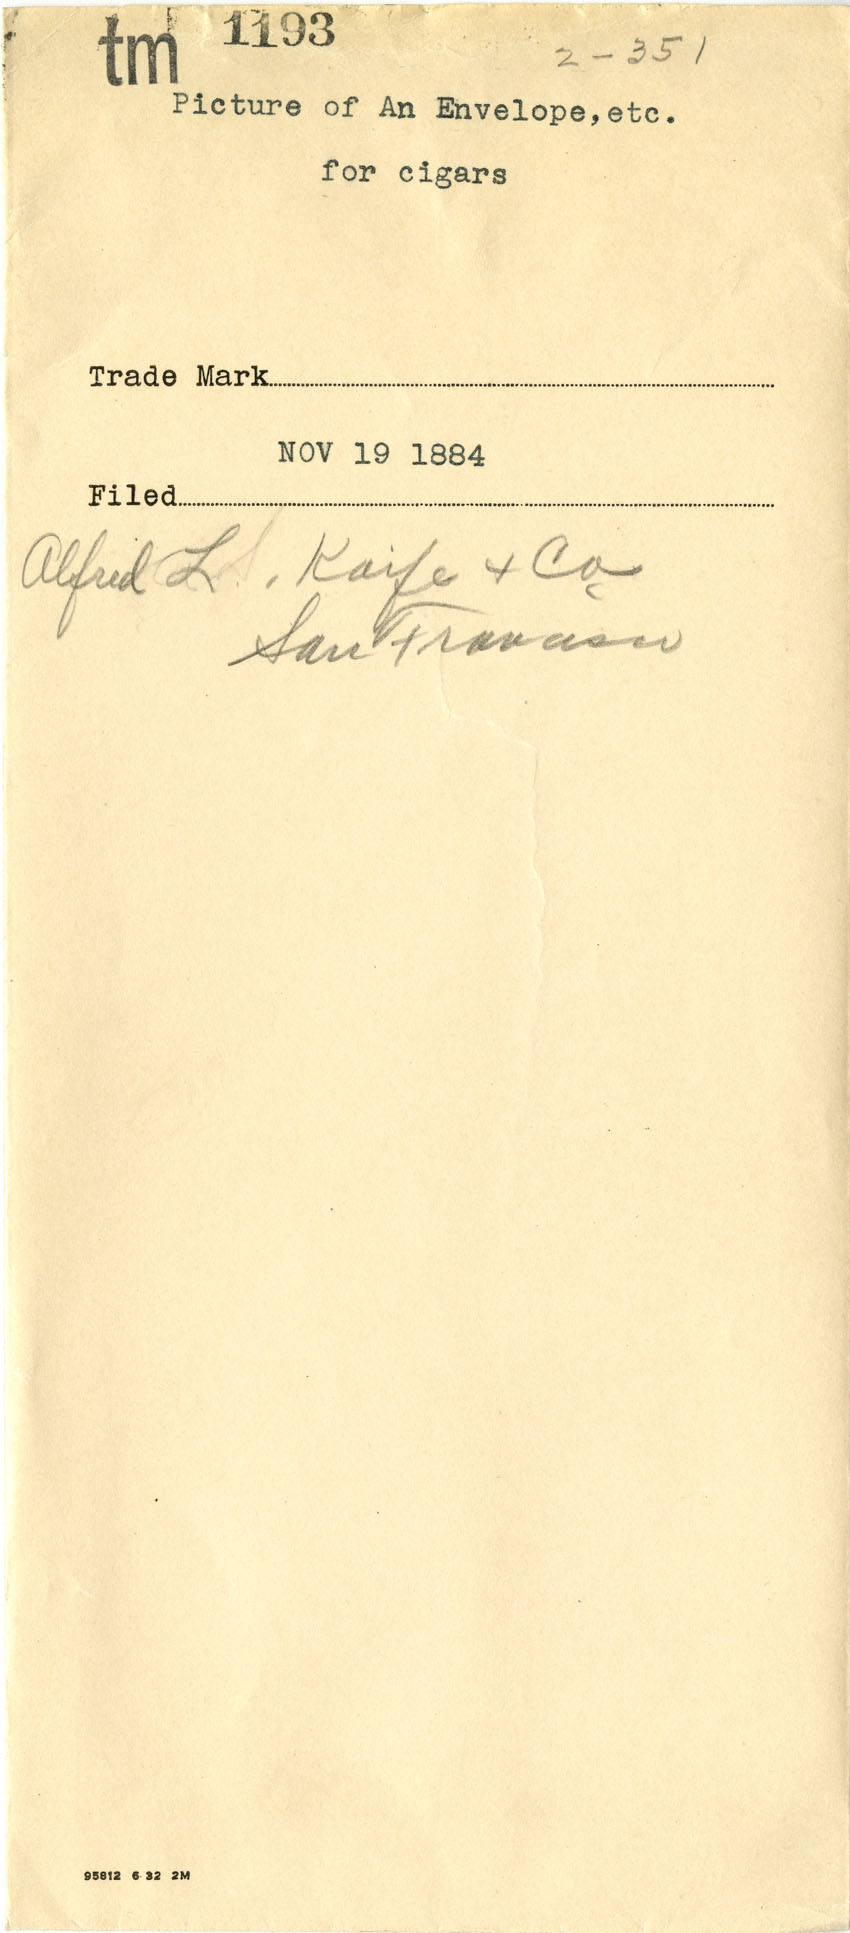 tm 1193
2-351
Picture of An Envelope,etc.
for cigars
Trade Mark
NOV 19 1884
Filed
Alfred L. Kaife + Co
San Francisco
95812 6 32 2M